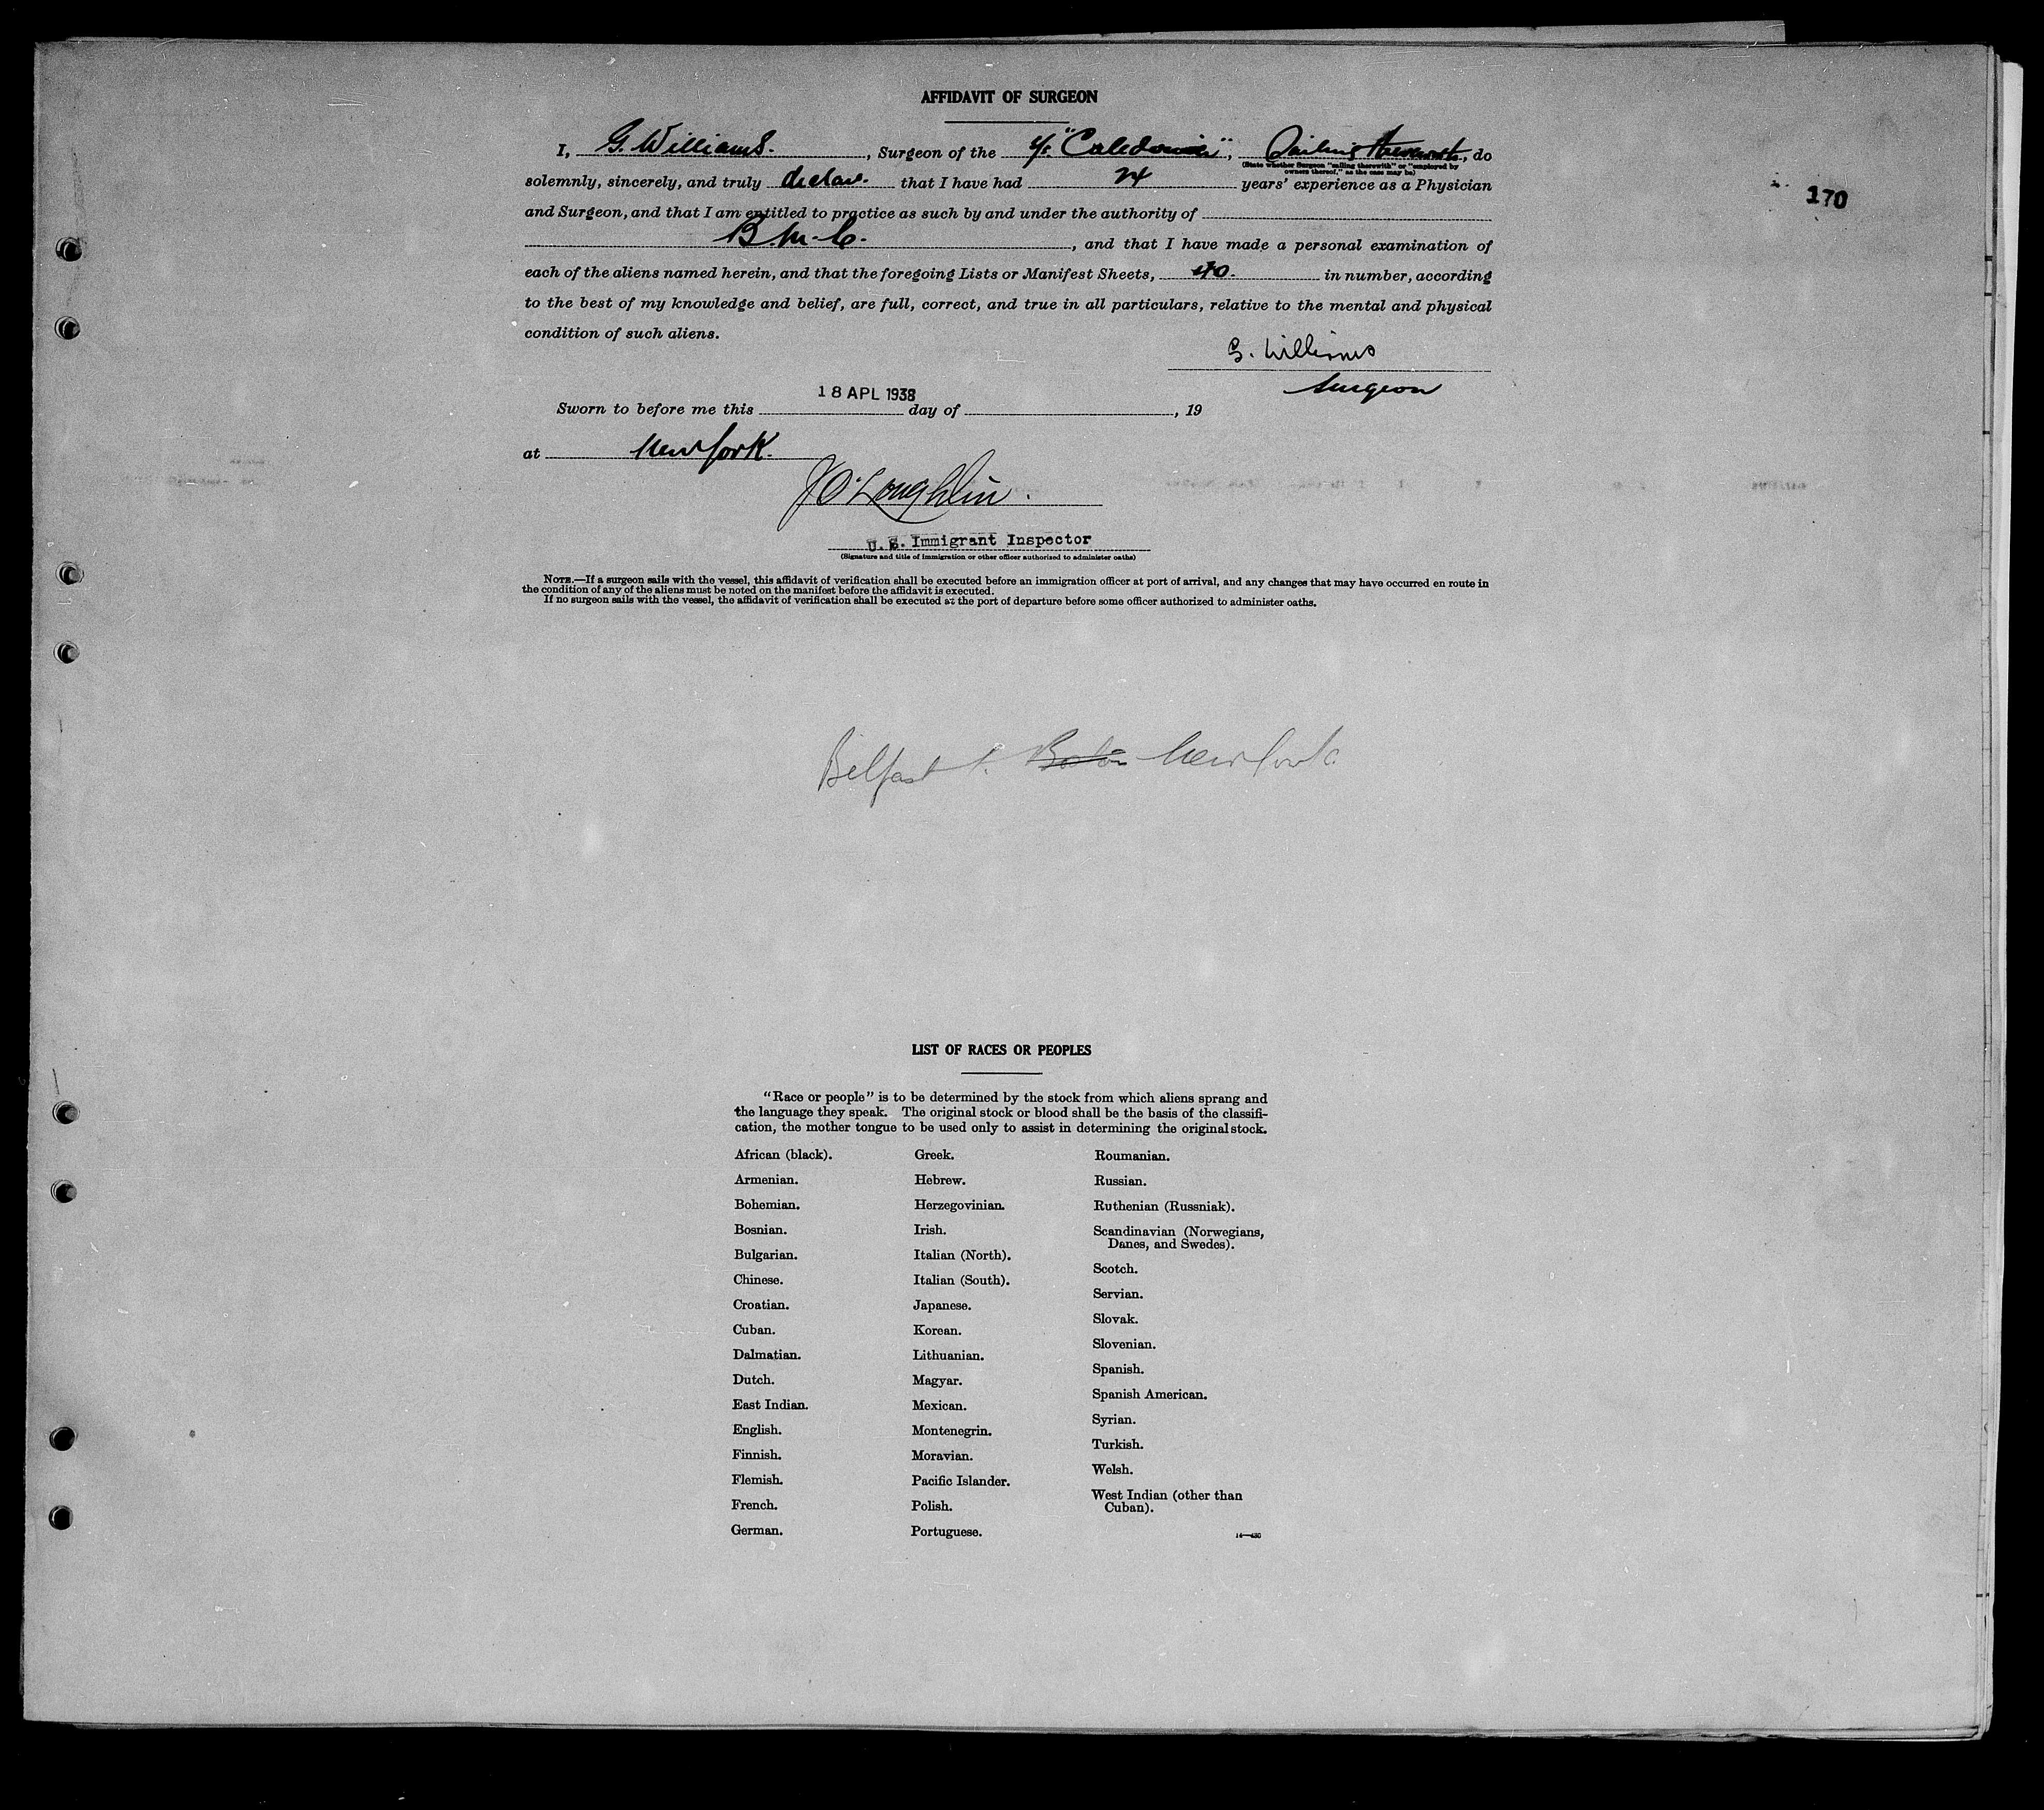 AFFIDAVIT OF SURGEON
I, G. Williams. , Surgeon of the "Caledonia", Sailing therewith, do
(State whether Surgeon "sailing therewith" or "employed by
owners thereof," as the case may be)
170
solemnly, sincerely, and truly declare that I have had 24 years' experience as a Physician
and Surgeon, and that I am entitled to practice as such by and under the authority of
B.M.C. , and that I have made a personal examination of
each of the aliens named herein, and that the foregoing Lists or Manifest Sheets, 40. in number, according
to the best of my knowledge and belief, are full, correct, and true in all particulars, relative to the mental and physical
condition of such aliens.
G. Williams
Surgeon
18 APL 1938
Sworn to before me this day of , 19
at New York.
J O'Loughlin.
U.S. Immigrant Inspector
(Signature and title of immigration or other officer authorized to administer oaths)
NOTE.—If a surgeon sails with the vessel, this affidavit of verification shall be executed before an immigration officer at port of arrival, and any changes that may have occurred en route in
the condition of any of the aliens must be noted on the manifest before the affidavit is executed.
If no surgeon sails with the vessel, the affidavit of verification shall be executed at the port of departure before some officer authorized to administer oaths.
Belfast Boston New York
LIST OF RACES OR PEOPLES
"Race or people" is to be determined by the stock from which aliens sprang and
the language they speak. The original stock or blood shall be the basis of the classifi-
cation, the mother tongue to be used only to assist in determining the original stock.
African (black).
Armenian.
Bohemian.
Bosnian.
Bulgarian.
Chinese.
Croatian.
Cuban.
Dalmatian.
Dutch.
East Indian.
English.
Finnish.
Flemish.
French.
German.
Greek.
Hebrew.
Herzegovinian.
Irish.
Italian (North).
Italian (South).
Japanese.
Korean.
Lithuanian.
Magyar.
Mexican.
Montenegrin.
Moravian.
Pacific Islander.
Polish.
Portuguese.
Roumanian.
Russian.
Ruthenian (Russniak).
Scandinavian (Norwegians,
Danes, and Swedes).
Scotch.
Servian.
Slovak.
Slovenian.
Spanish.
Spanish American.
Syrian.
Turkish.
Welsh.
West Indian (other than
Cuban).